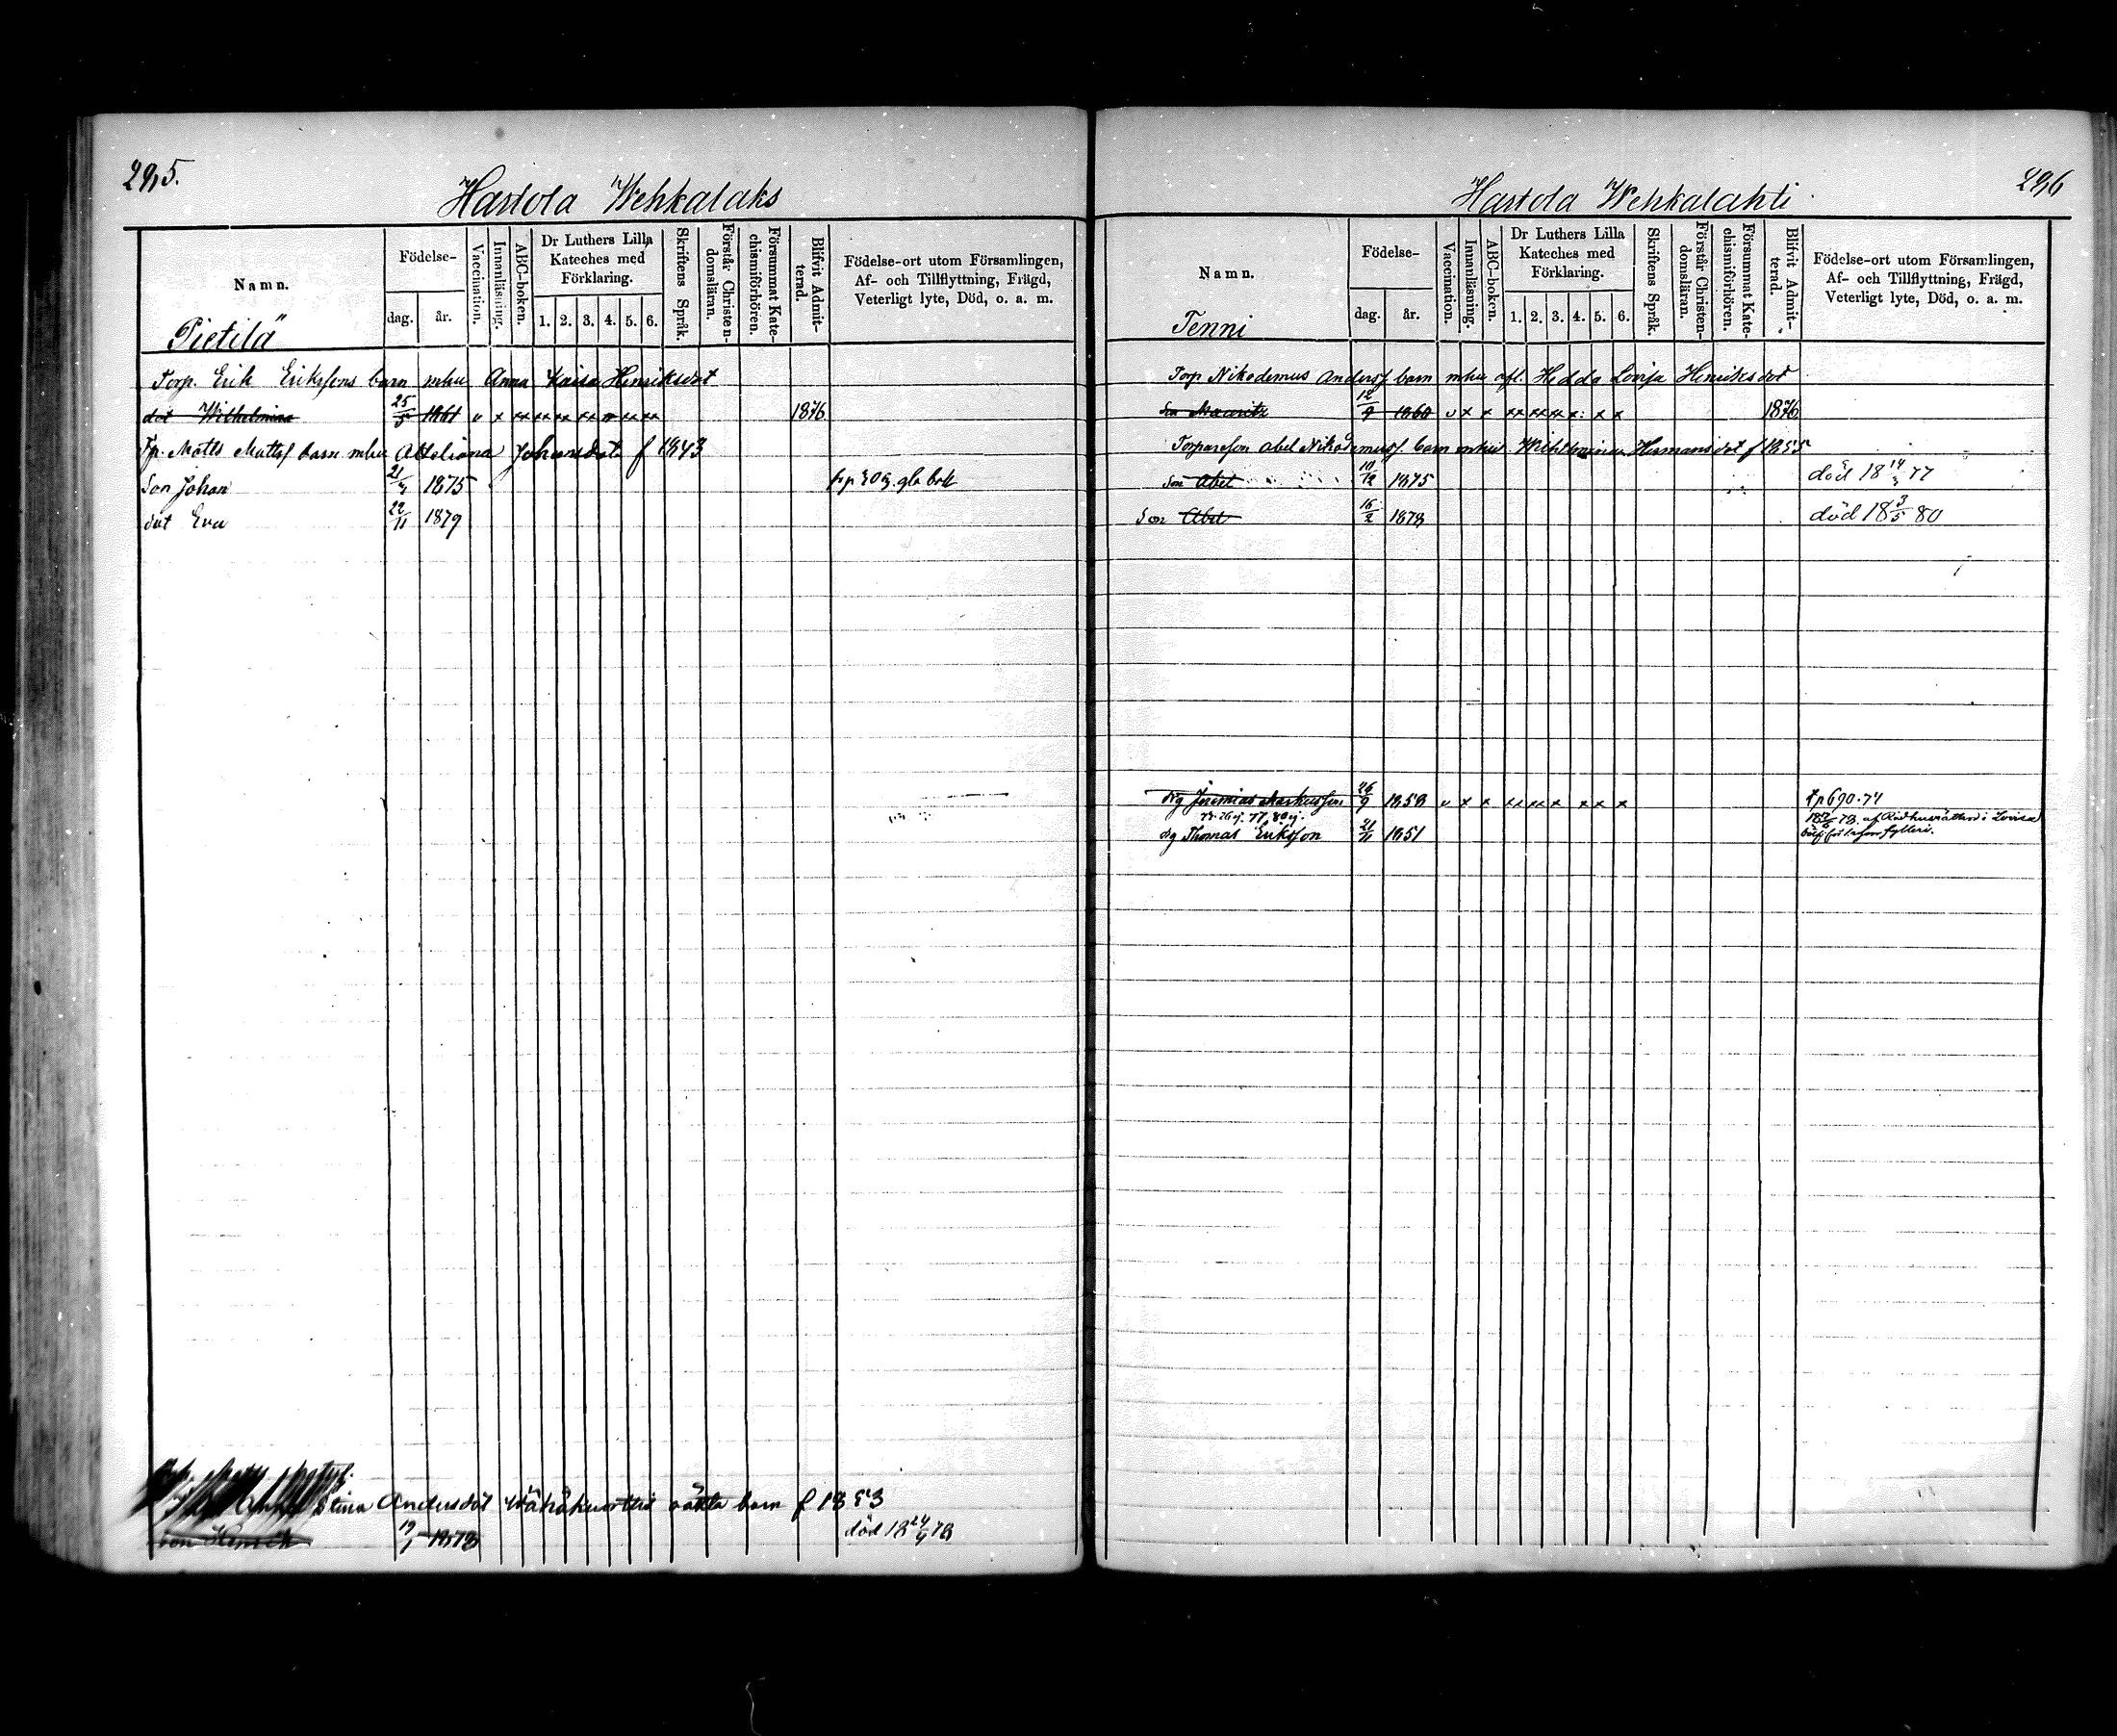 295.
Hartola Wehkalaks
Namn.
Födelse-
dag. år.
Vaccination.
Innanläsning.
ABC-boken.
Dr Luthers Lilla Kateches med Förklaring.
1. 2. 3. 4. 5. 6.
Skriftens Språk.
Förstår Christendomsläran.
Försummat Katechismiförhören.
Blifvit Admitterad.
Födelse-ort utom Församlingen,
Af- och Tillflyttning, Frägd,
Veterligt lyte, Död, o. a. m.
Pietilä
Torp. Erik Erikssons barn mhu Anna Kaisa Henriksdot
dot Wilhelmina 25/5 1861 v x x xx xx xx xx xx xx 1876
Tp. Matts Mattsf barn mhu Johansdot f 1843
Son Johan 21/4 1875 gla bok
dot Eva 22/11 1879
Stina Andersdot oäkta barn f 1853
Son Henrik 19/1 1878 död 18 24/4 78
296
Hartola Wehkalahti
Namn.
Födelse-
dag. år.
Vaccination.
Innanläsning.
ABC-boken.
Dr Luthers Lilla Kateches med Förklaring.
1. 2. 3. 4. 5. 6.
Skriftens Språk.
Förstår Christendomsläran.
Försummat Katechismiförhören.
Blifvit Admitterad.
Födelse-ort utom Församlingen,
Af- och Tillflyttning, Frägd,
Veterligt lyte, Död, o. a. m.
Tenni
Torp Nikodemus Andersf barn mhu afl. Hedda Lovisa Henriksdot
Son Mauritz 12/9 1860 v x x xx xx xx x x x 1876
Torpareson Abel Nikodemusf. barn mhu Wilhelmina Hermansdot f 1855
Son Abel 10/12 1875 död 18 14/3 77
Son Abel 16/2 1878 död 18 3/5 80
dg Jeremias Markusson 26/9 1858 v x x xx xx x x x x Tp 690. 74
dg Thomas Eriksson 21/11 1851 78. af Rådhusrätten i Lovisa
fylleri.